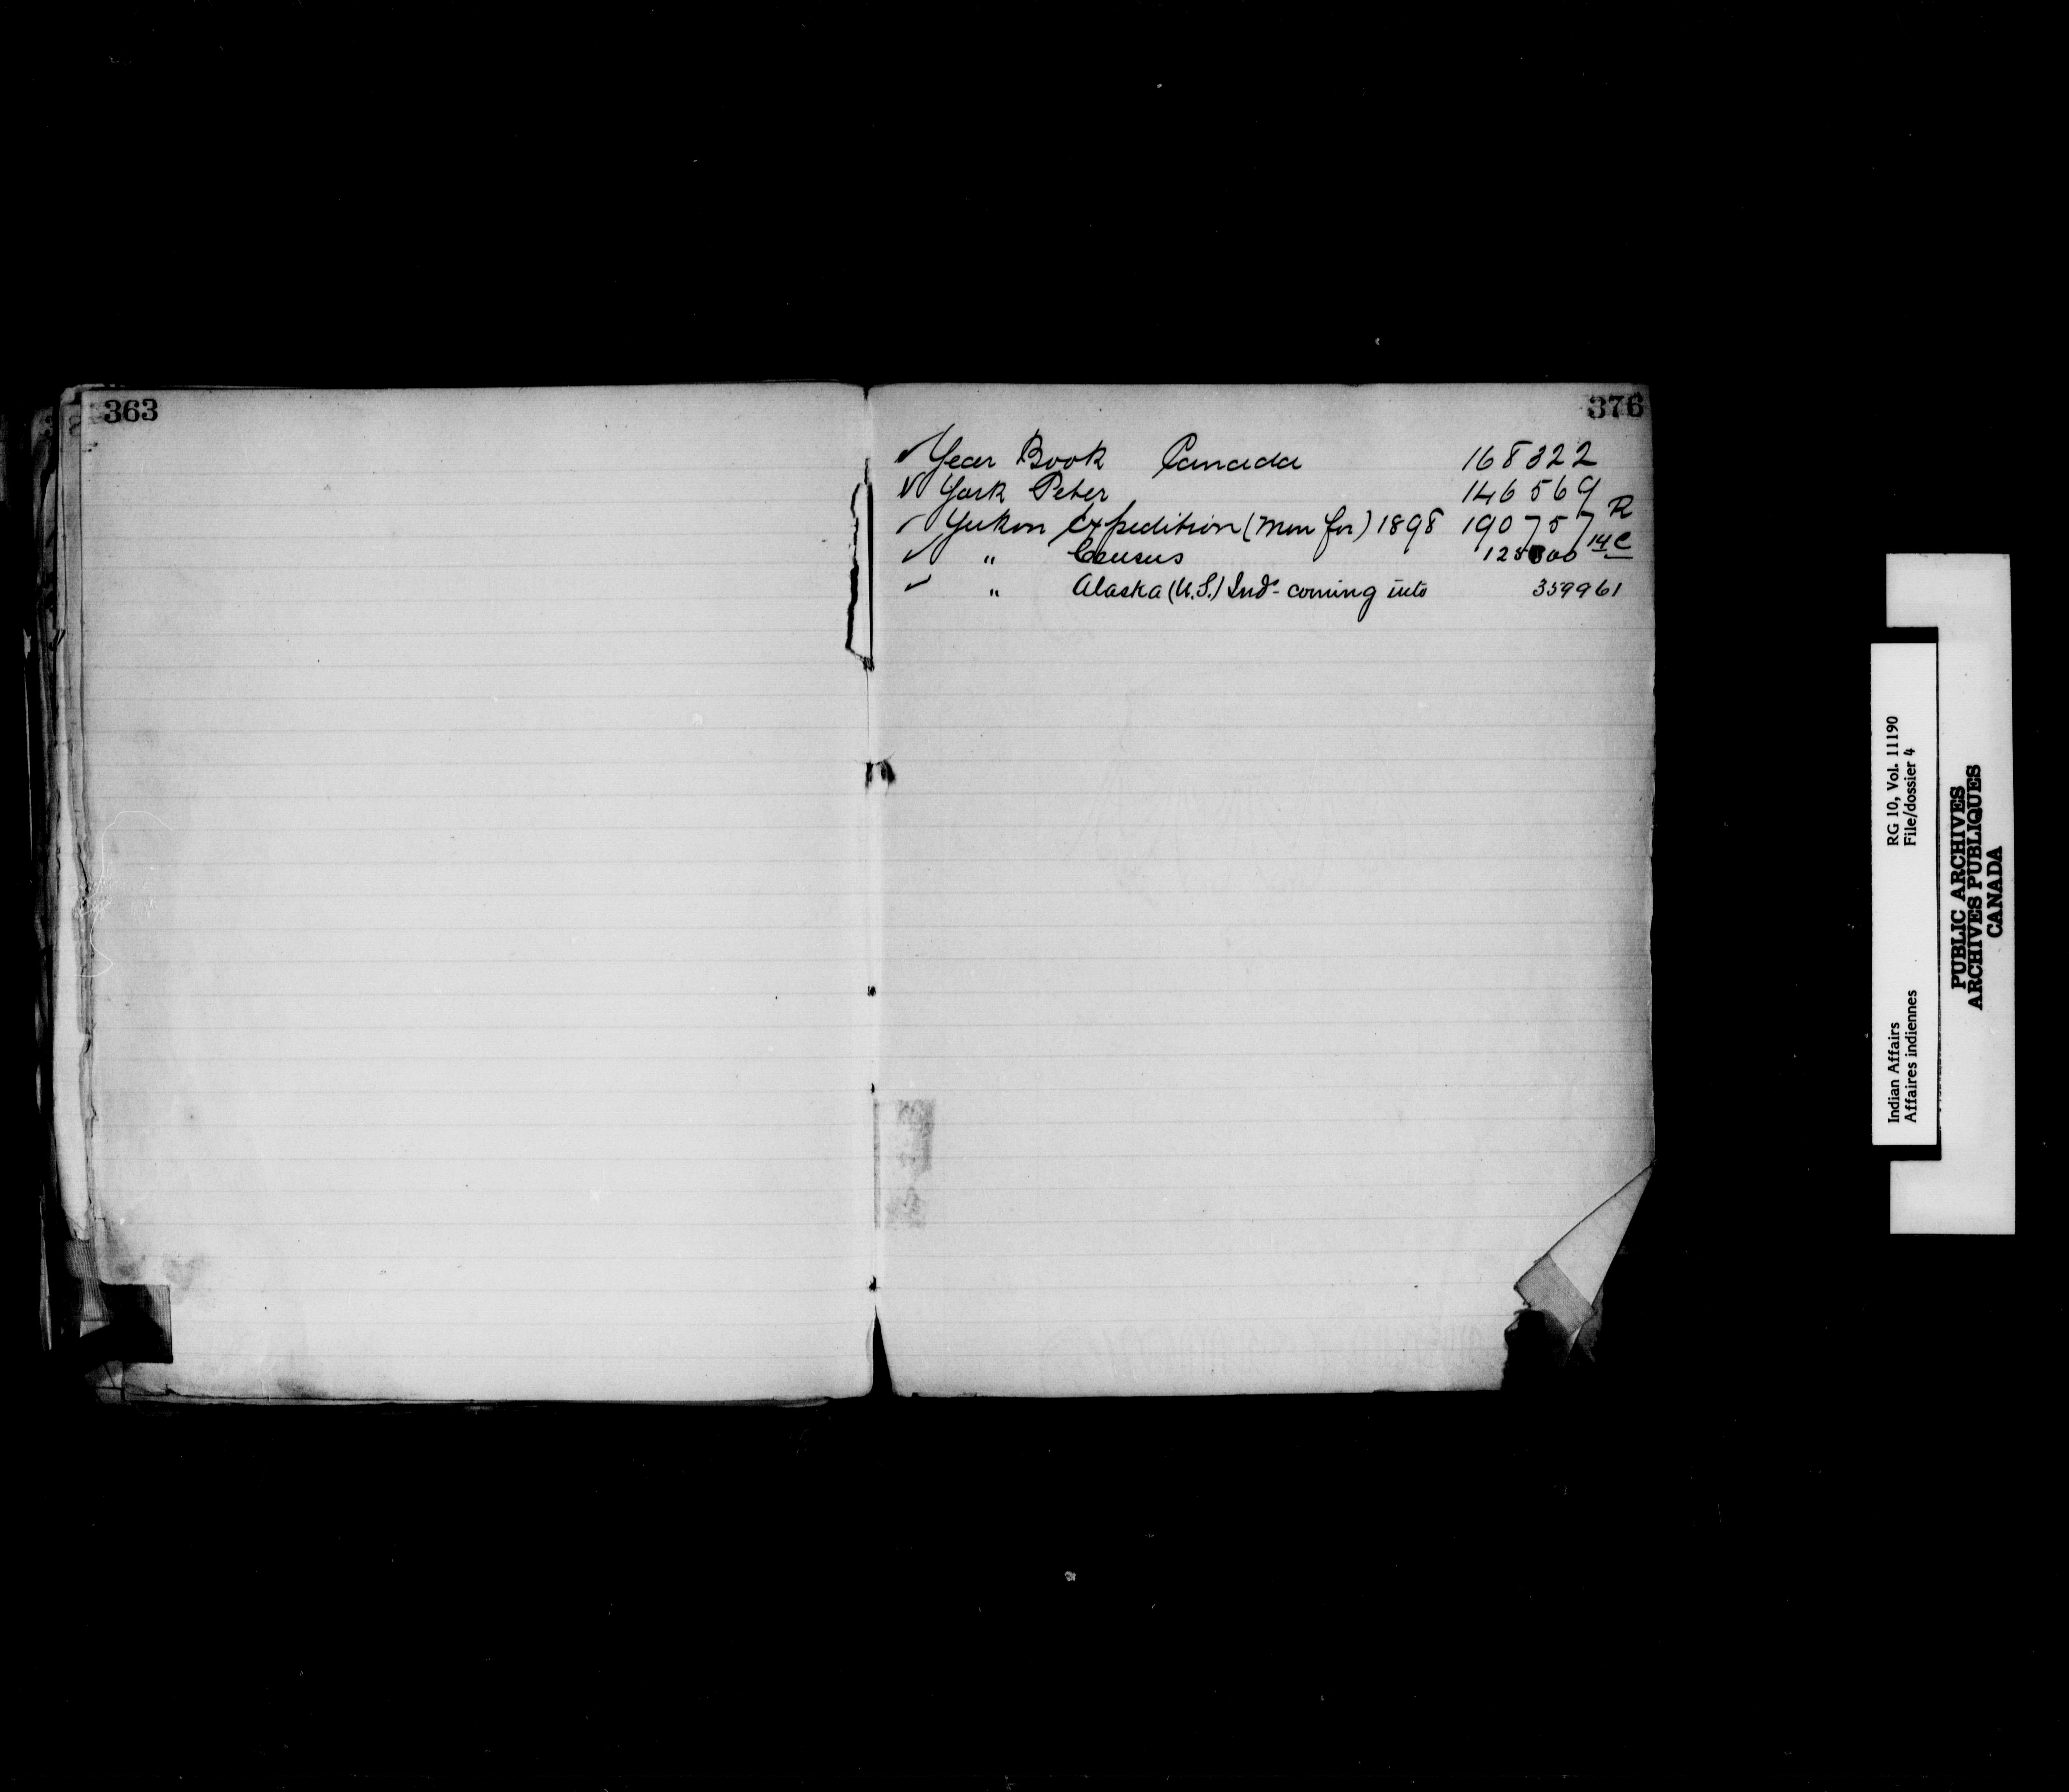 363
376
✓ Year Book Canada 168322
✓ York Peter 146569
✓ Yukon Expedition (Men for) 1898 190757 R
✓ " Census 125800 14C
✓ " Alaska (U.S.) Inds. coming into 359961
RG 10, Vol. 11190
File/dossier 4
Indian Affairs
Affaires indiennes
PUBLIC ARCHIVES
ARCHIVES PUBLIQUES
CANADA